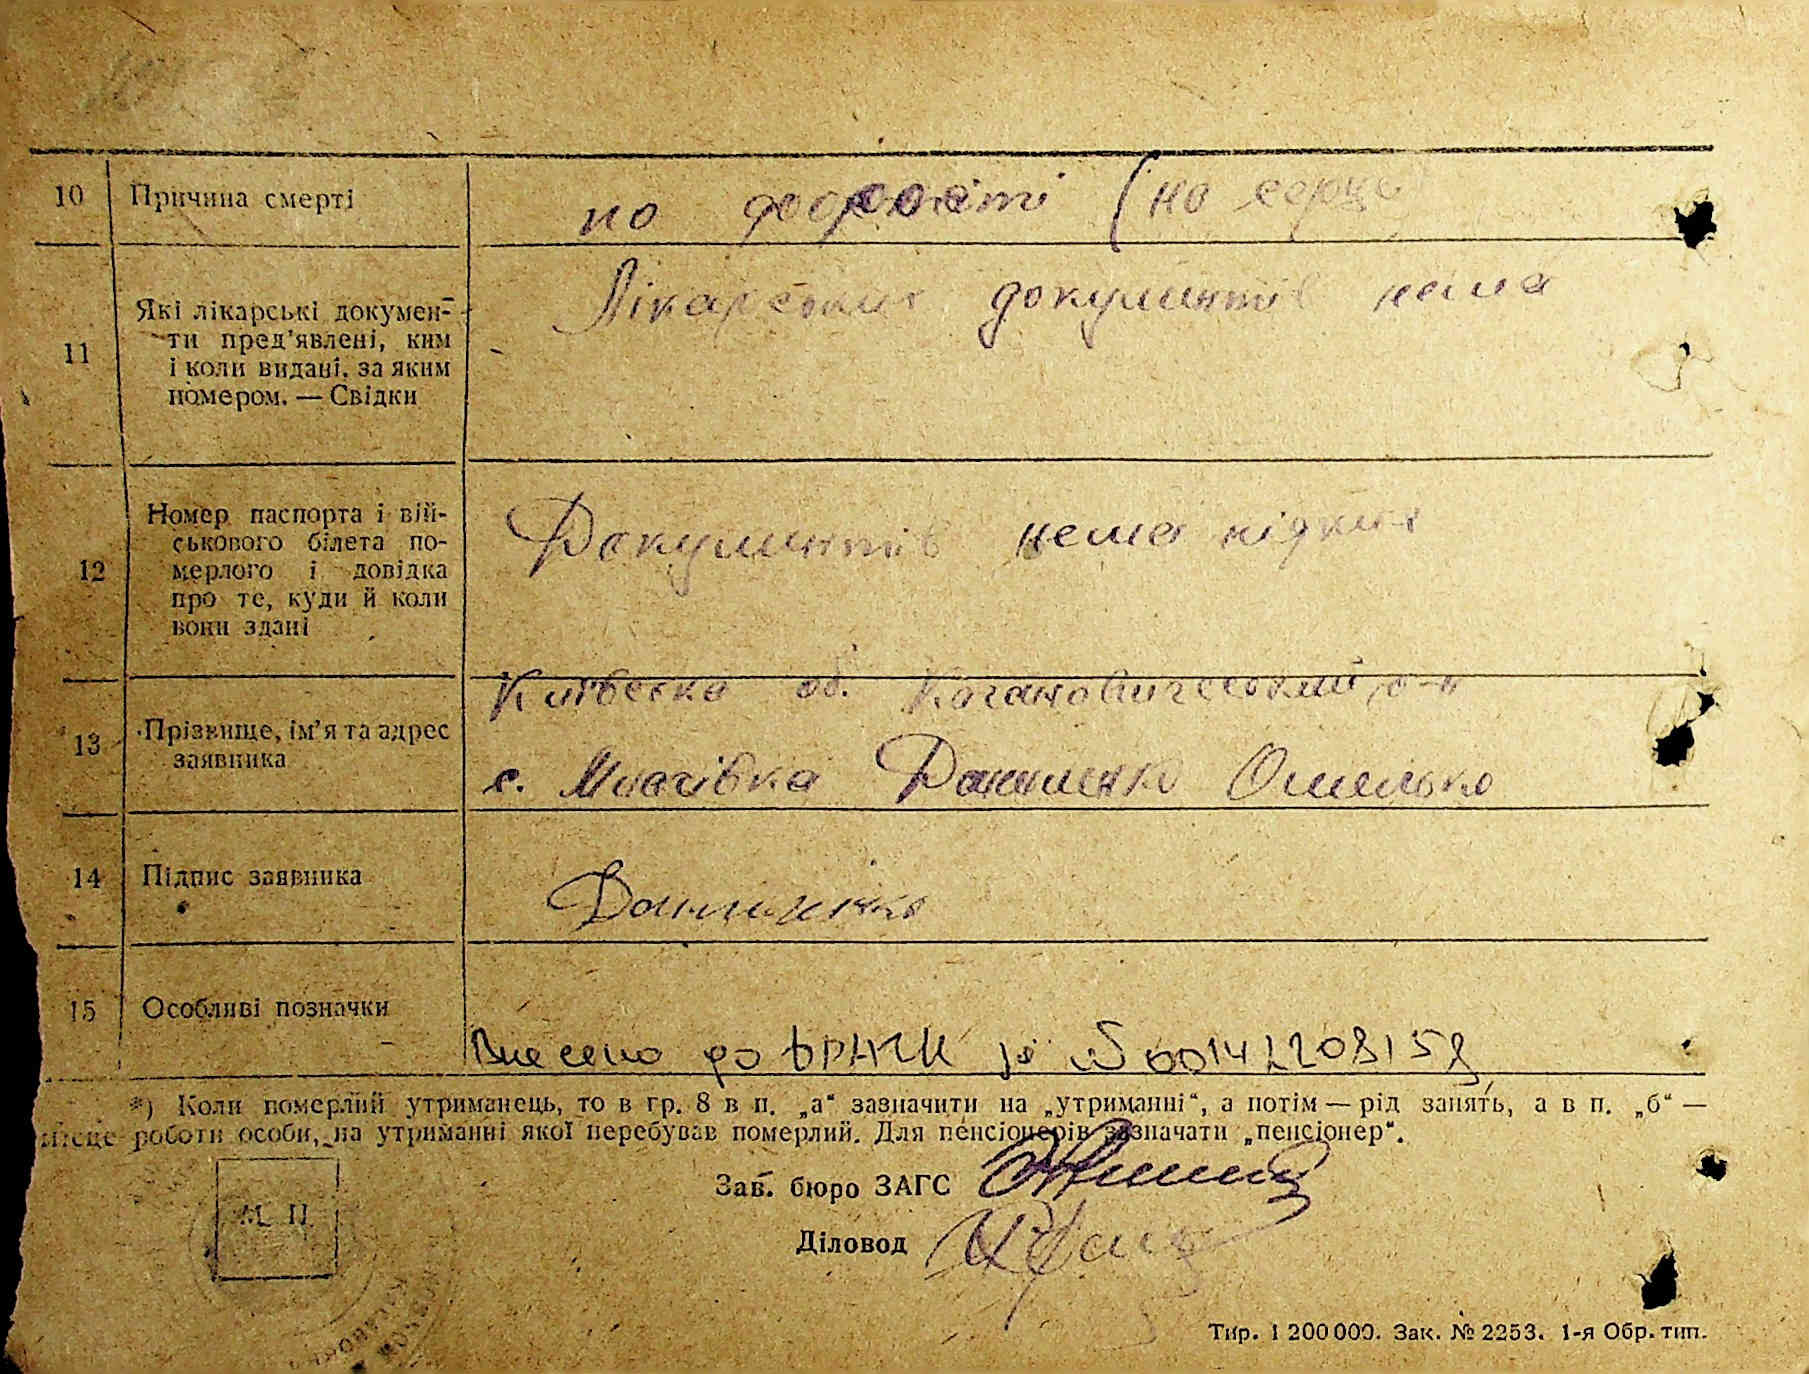 10 Причина смерті
по (на серце
11 Які лікарські докумен-
ти пред’явлені, ким
і коли видані, за яким
номером. — Свідки
Лікарських документів нема
12 Номер паспорта і вій-
ськового білета по-
мерлого і довідка
про те, куди й коли
вони здані
Документів нема ніяких
13 Прізвище, ім’я та адрес
заявника
Київська об. Кагановичеський р-н
с. Мочівка Данименко Омелько
14 Підпис заявника
15 Особливі позначки
Внесено до ДРАЦС за № 00141208158
*) Коли померлий утриманець, то в гр. 8 в п. „а“ зазначити на „утриманні“, а потім — рід занять, а в п. „б“ —
місце роботи особи, на утриманні якої перебував померлий. Для пенсіонерів зазначати „пенсіонер“.
Зав. бюро ЗАГС
М. П.
Діловод
Тир. 1 200 000. Зак. № 2253. 1-я Обр. тип.